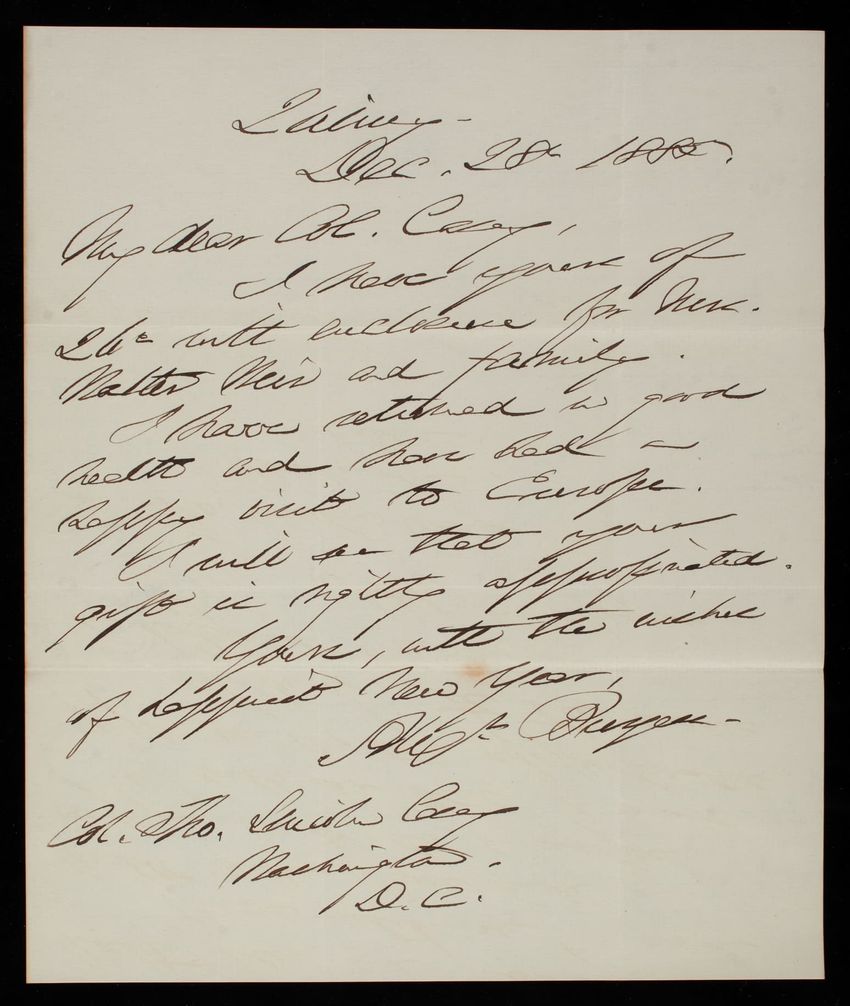 Quincy -
Dec. 28th 1885.
My dear Col. Casey,
I have yours of
26th with enclosure for Mrs.
Weir and family.
I have returned in good
health and have had a
happy visit to Europe.
I will see that your
gift is rightly appropriated.
Yours, with the wishes
of happiest New Year,
Alexr Burgess -
Col. Tho. Lincoln Casey
Washington.
D.C.